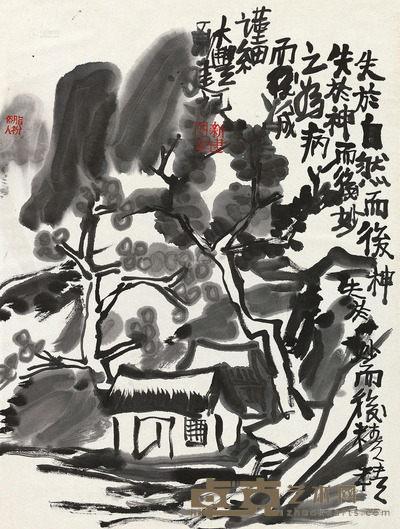 失於自然而後神
失於神而後妙
失於妙而後精精
之為病
而
成
謹細
大豐
新建
卓克艺术网